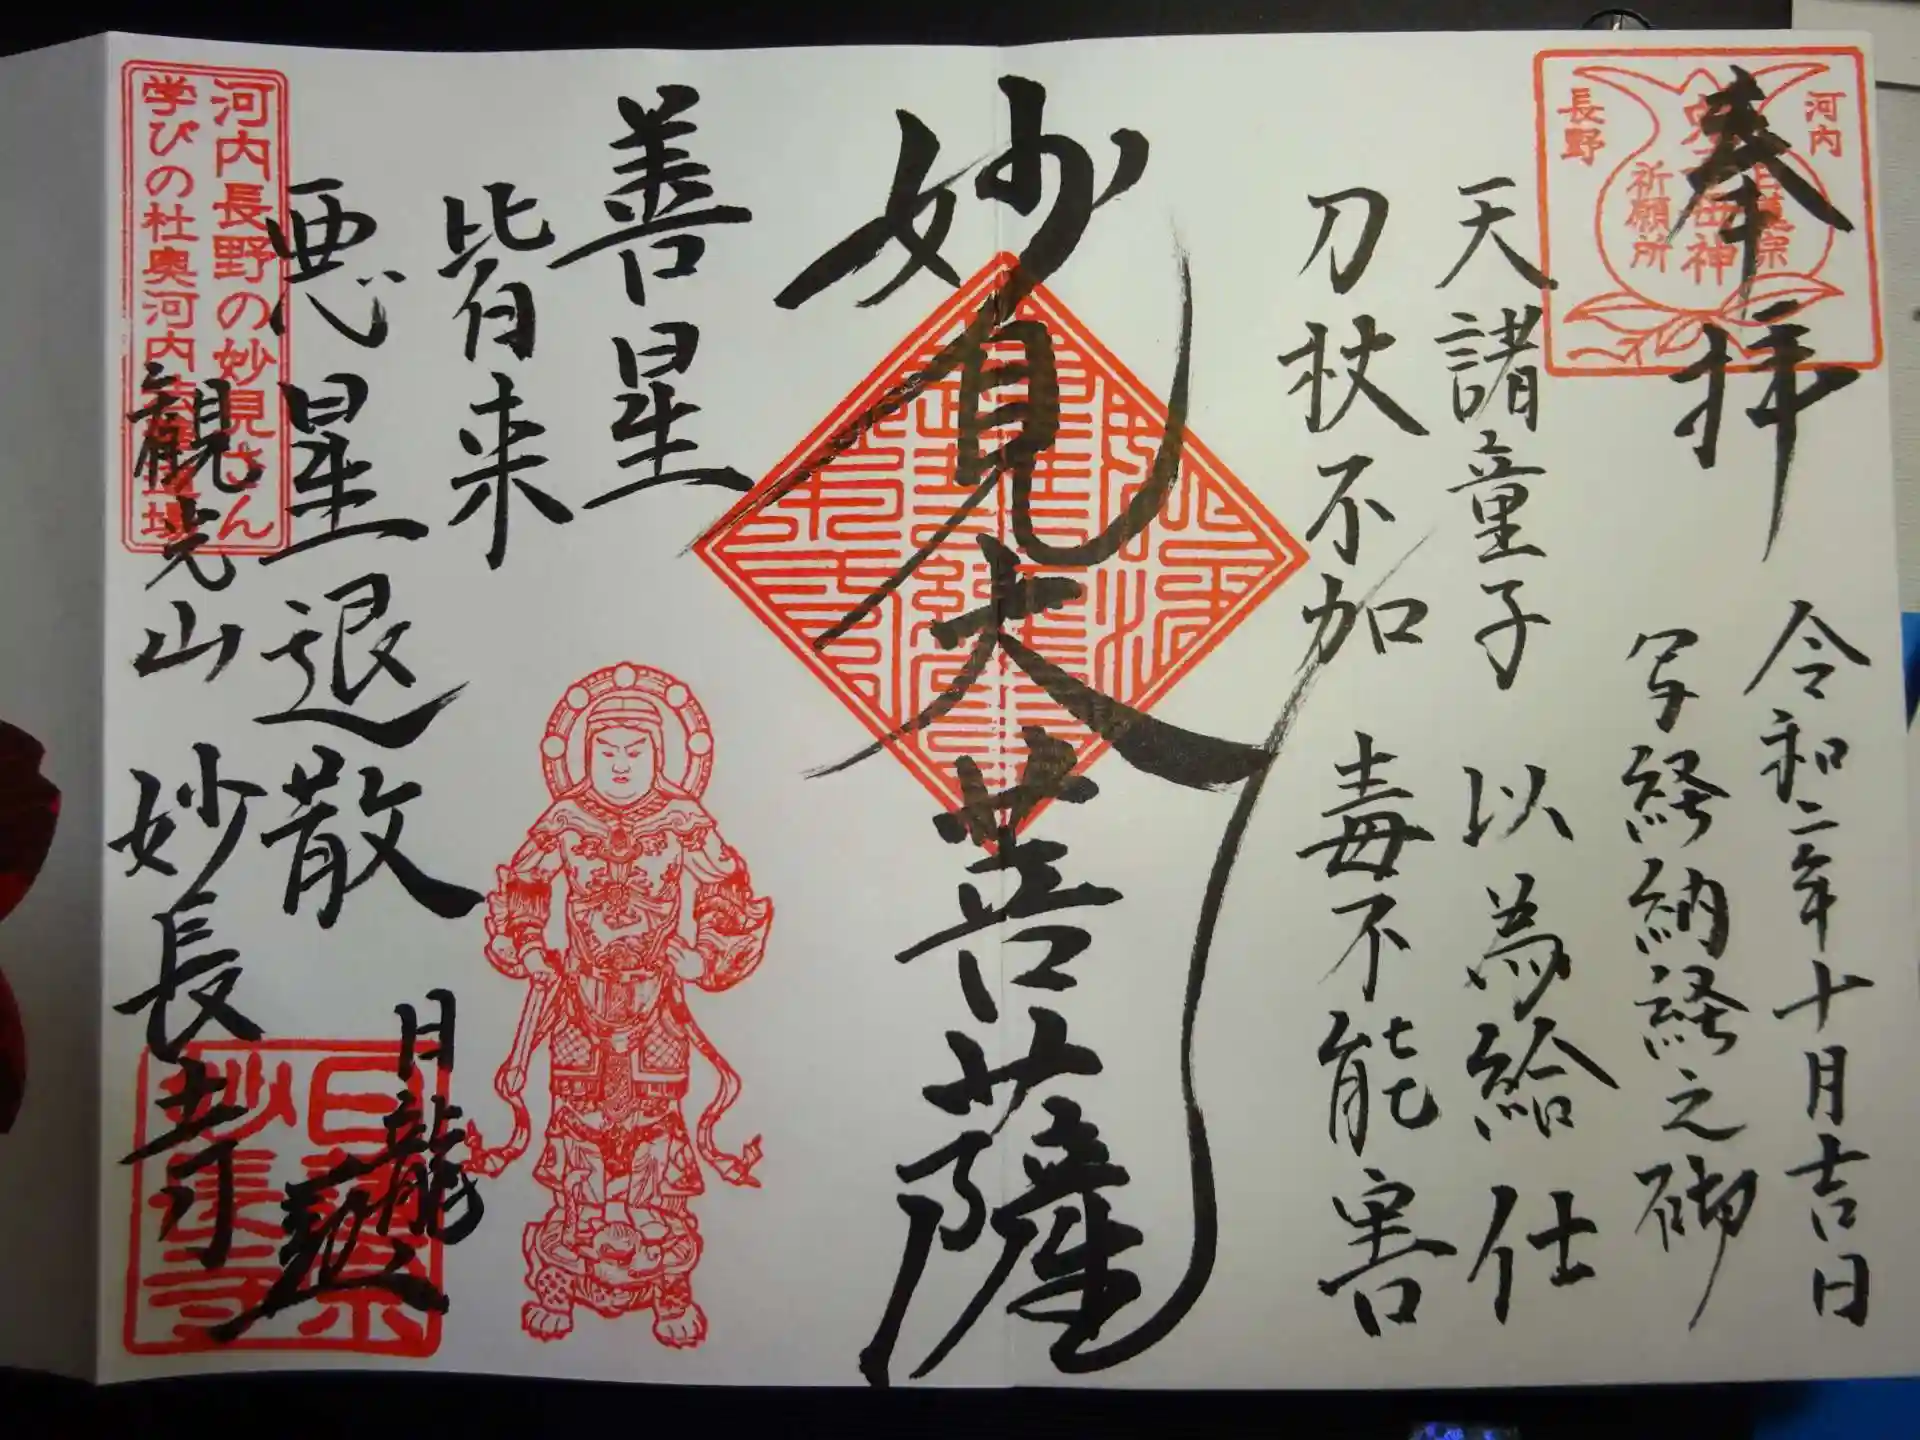 奉拝
河内
長野
祈願所
令和二年十月吉日
写経納経之砌
天諸童子 以為給仕
刀杖不加 毒不能害
妙見大菩薩
善星
皆来
悪星退散
日龍
観光山 妙長寺
河内長野の妙見さん
学びの杜奥河内
妙長寺